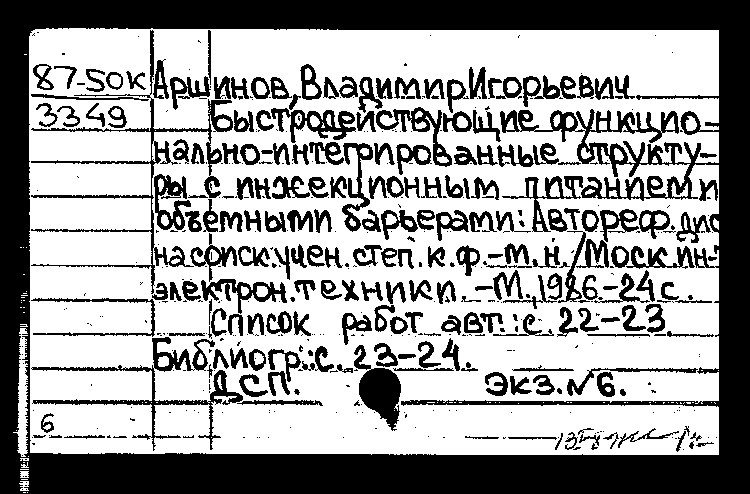 87-50к Аршинов, Владимир Игорьевич
3349 Быстродействующие функцио-
нально-интегрированные структу-
ры с инжекционным питанием и
объемными барьерами: Автореф. дис
на соиск. учен. степ. к.ф.-м.н. /Моск. ин-т
электрон. техники. -М., 1986.-24с.
Список работ авт.: с. 22-23.
Библиогр.: с. 23-24.
ДСП. Экз. №6.
6